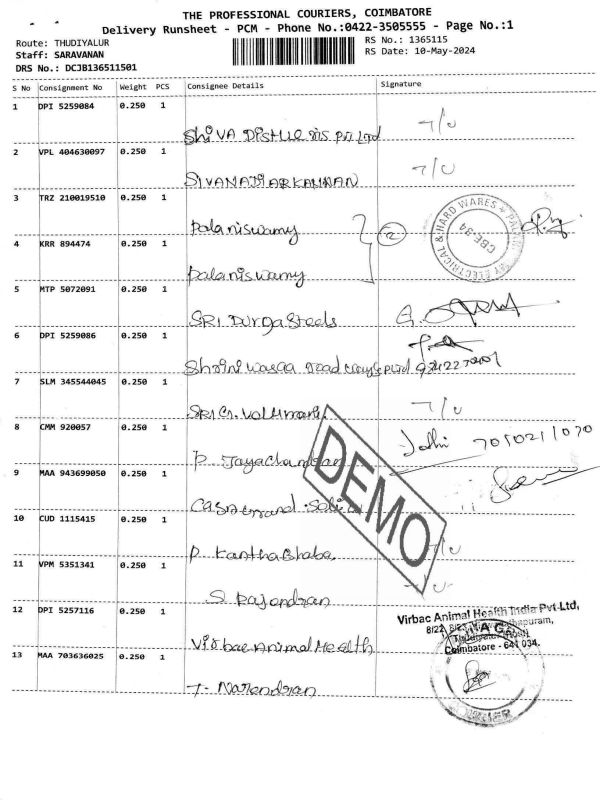 THE PROFESSIONAL COURIERS, COIMBATORE
Delivery Runsheet - PCM - Phone No.:0422-3505555 - Page No.:1
Route: THUDIYALUR
Staff: SARAVANAN
DRS No.: DCJB136511501
RS No.: 1365115
RS Date: 10-May-2024
S No Consignment No Weight PCS Consignee Details Signature
1 DPI 5259084 0.250 1
ShiVA Pvt Ltd T/O
2 VPL 404630097 0.250 1
T/O
3 TRZ 210019510 0.250 1
Palaniswamy
4 KRR 894474 0.250 1
Palaniswamy
2
ELECTRICAL & HARD WARES
CBE-34
5 MTP 5072091 0.250 1
SRI Durga Steels
6 DPI 5259086 0.250 1
7 SLM 345544045 0.250 1
T/O
8 CMM 920057 0.250 1
P Jayachandran
9 MAA 943699050 0.250 1
10 CUD 1115415 0.250 1
P
T/O
11 VPM 5351341 0.250 1
S Rajendran
12 DPI 5257116 0.250 1
Virbac Animal Health
Virbac Animal Health India Pvt-Ltd,
Coimbatore - 641 034.
13 MAA 703636025 0.250 1
T- Narendran
DEMO